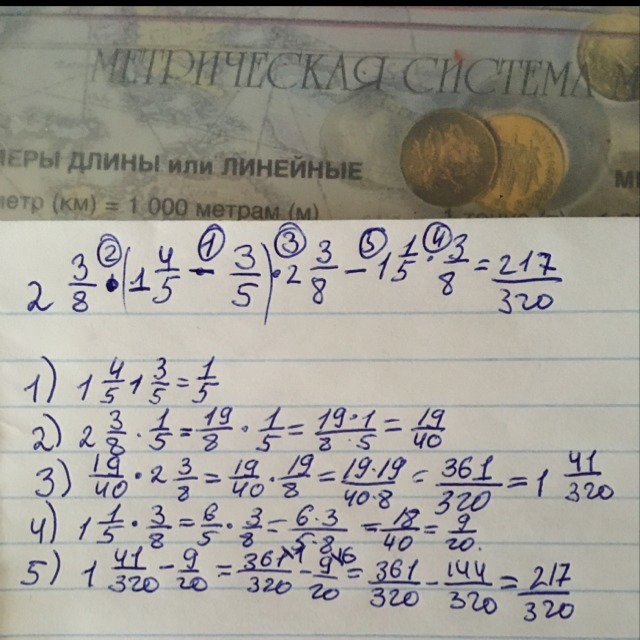 МЕТРИЧЕСКАЯ СИСТЕМА М
МЕРЫ ДЛИНЫ или ЛИНЕЙНЫЕ
МЕ
метр (км) = 1 000 метрам (м)
2 3/8 ②· (1 4/5 ①- 3/5) ③· 2 3/8 ⑤- 1 1/5 ④· 3/8 = 217/320
1) 1 4/5 1 3/5 = 1/5
2) 2 3/8 · 1/5 = 19/8 · 1/5 = 19·1/8·5 = 19/40
3) 19/40 · 2 3/8 = 19/40 · 19/8 = 19·19/40·8 = 361/320 = 1 41/320
4) 1 1/5 · 3/8 = 6/5 · 3/8 = 6·3/5·8 = 18/40 = 9/20.
5) 1 41/320 - 9/20 = 361\1/320 - 9\16/20 = 361/320 - 144/320 = 217/320